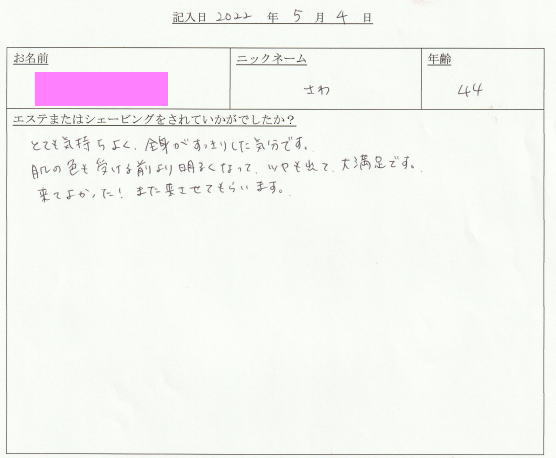 記入日 2022 年 5 月 4 日
お名前 ニックネーム 年齢
さわ 44
エステまたはシェービングをされていかがでしたか？
とても気持ちよく、全身がすっきりした気分です。
肌の色も受ける前より明るくなって、ツヤも出て、大満足です。
来てよかった！また来させてもらいます。